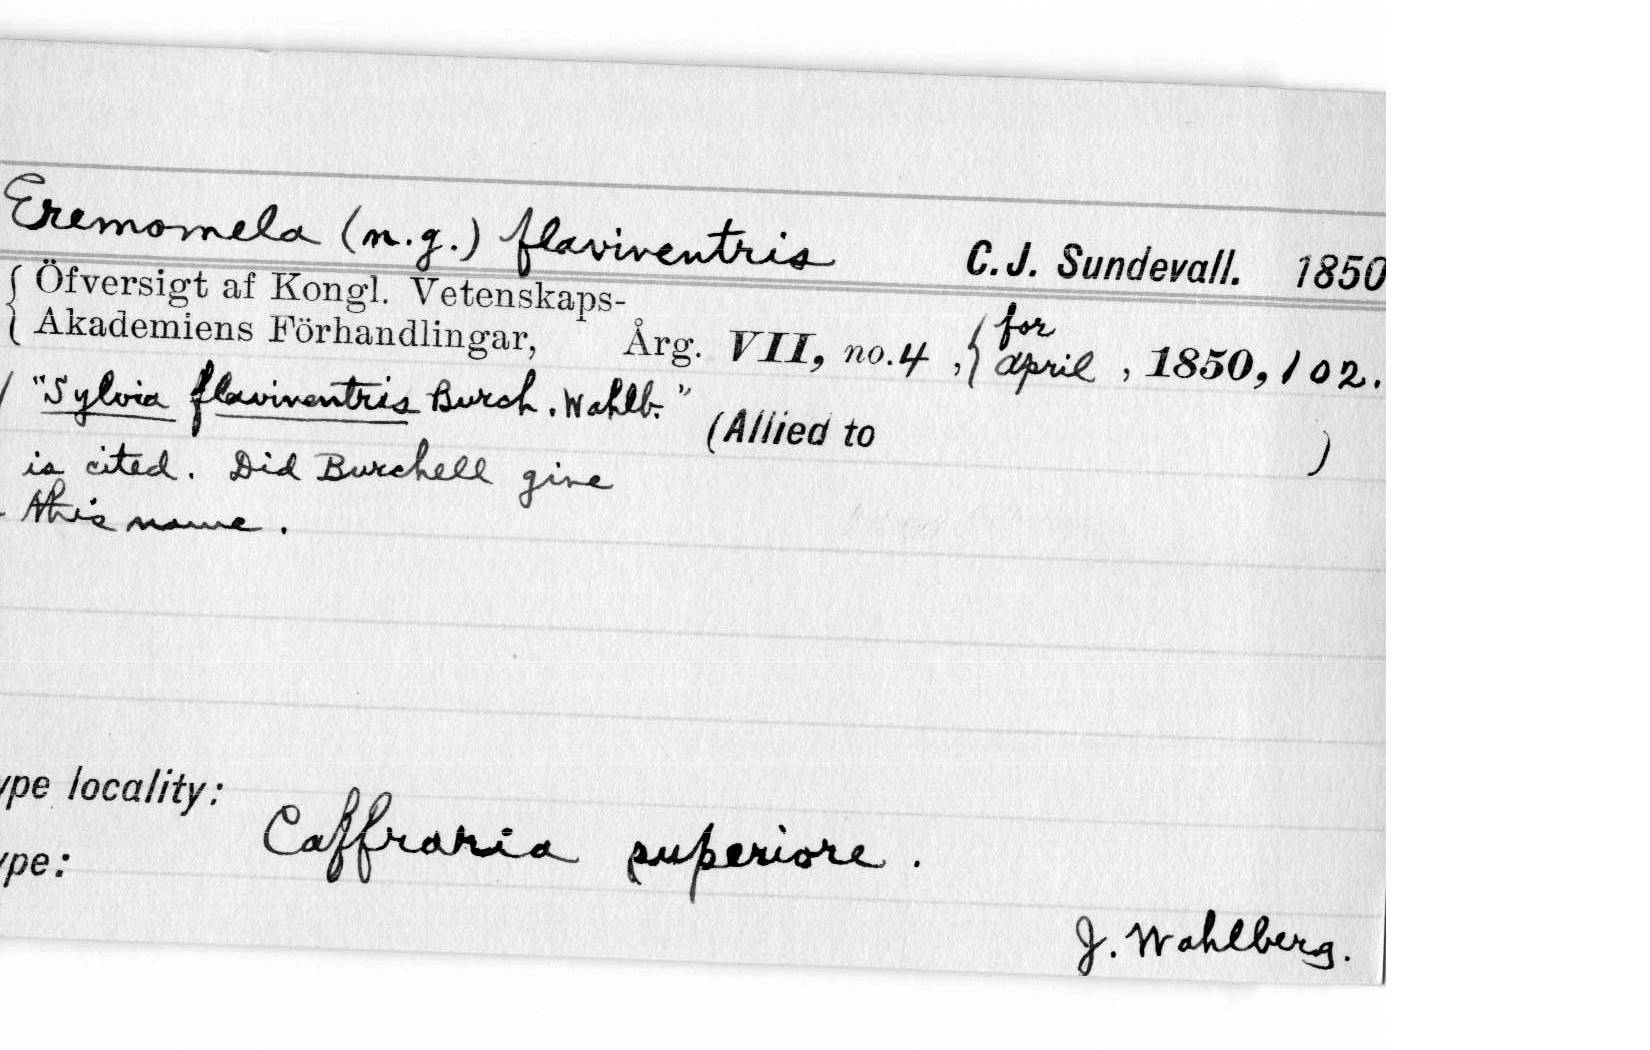 Eremomela (n.g.) flaviventris C.J. Sundevall. 1850
Öfversigt af Kongl. Vetenskaps-
Akademiens Förhandlingar, Årg. VII, no. 4, { for April, 1850, 102.
"Sylvia flaviventris Burch. Wahlb." (Allied to )
is cited. Did Burchell give
this name.
ype locality:
Caffraria superiore.
ype:
J. Wahlberg.